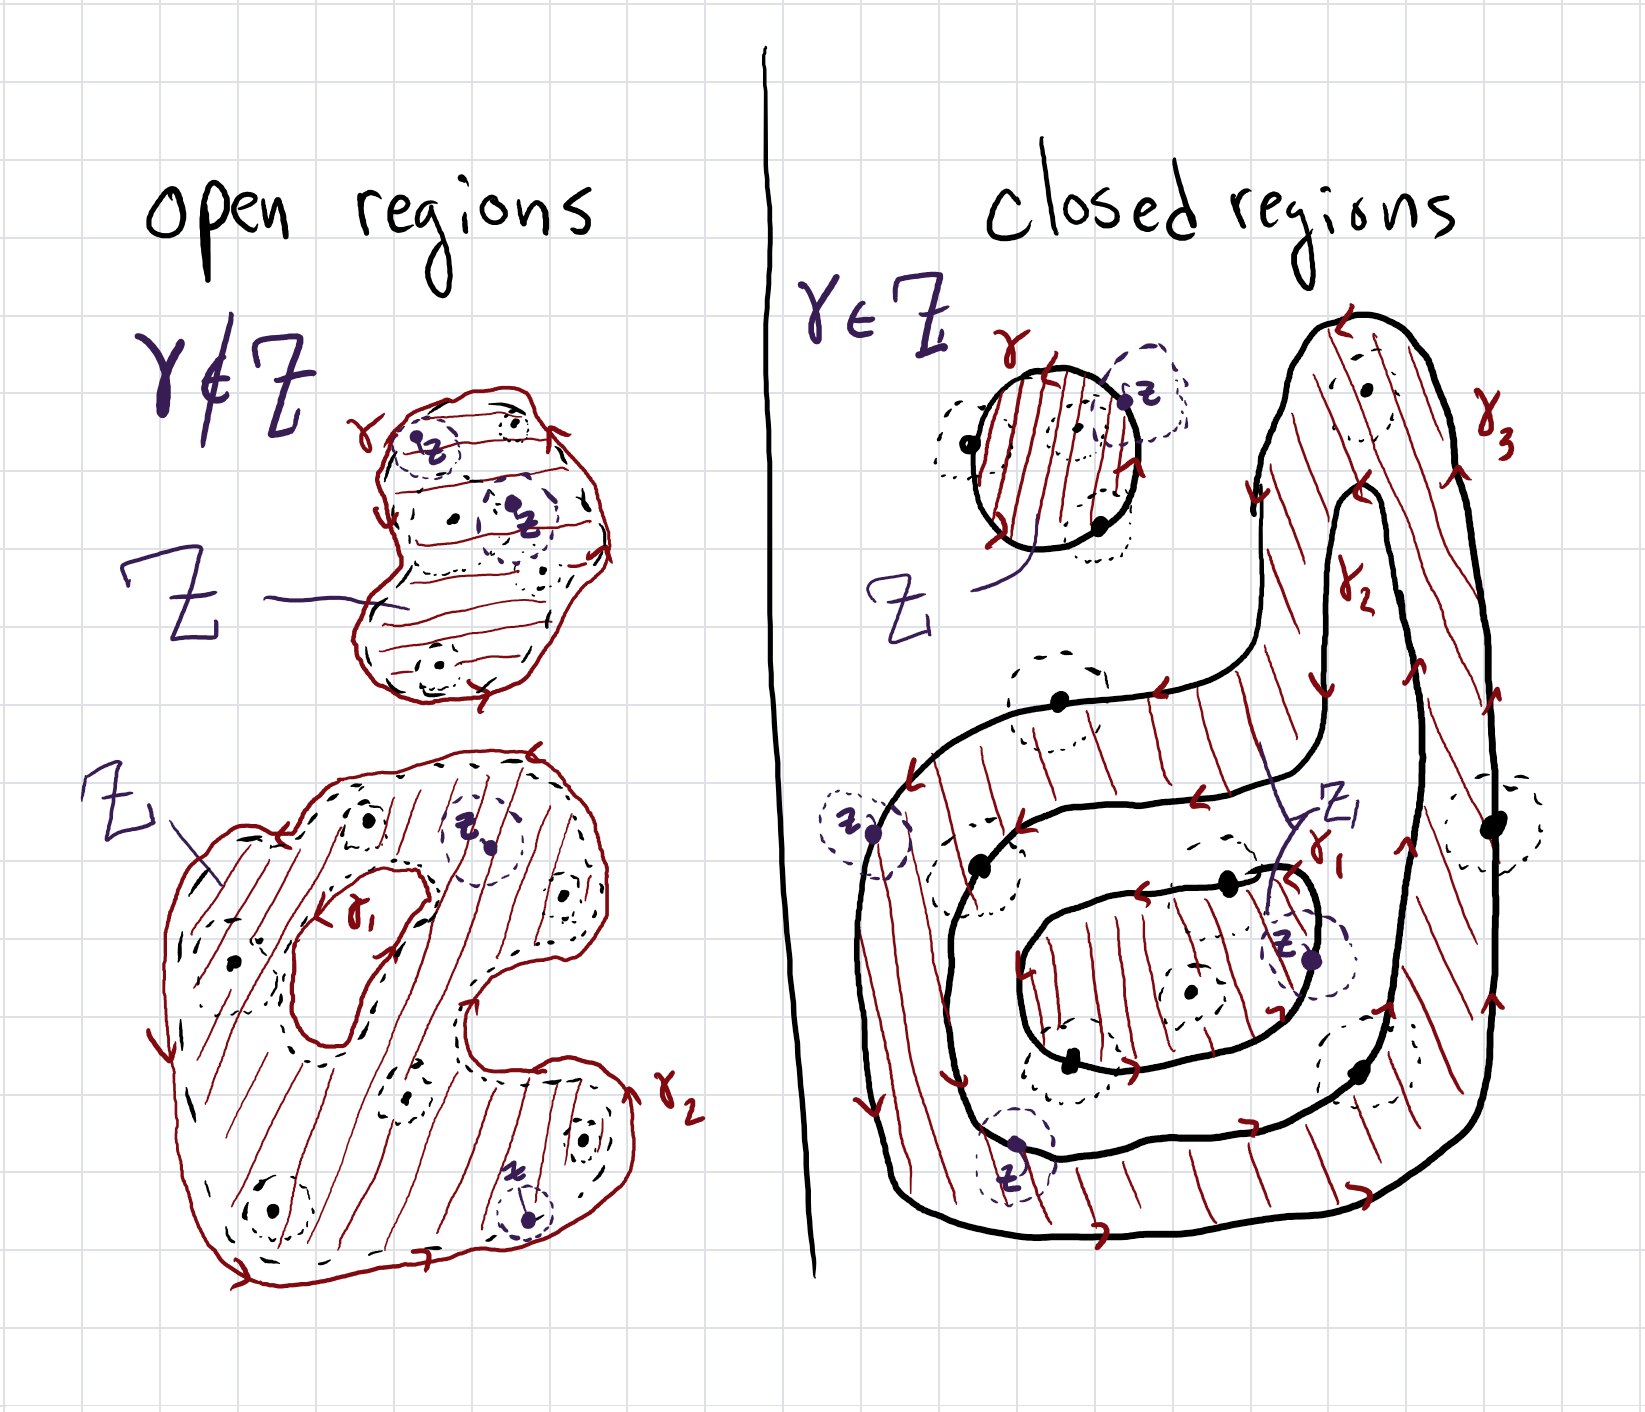 open regions
γ ∉ Z
γ
z
z
Z
Z
z
γ₁
γ₂
z
closed regions
γ ∈ Z
γ
z
Z
γ₃
γ₂
z
Z
γ₁
z
z